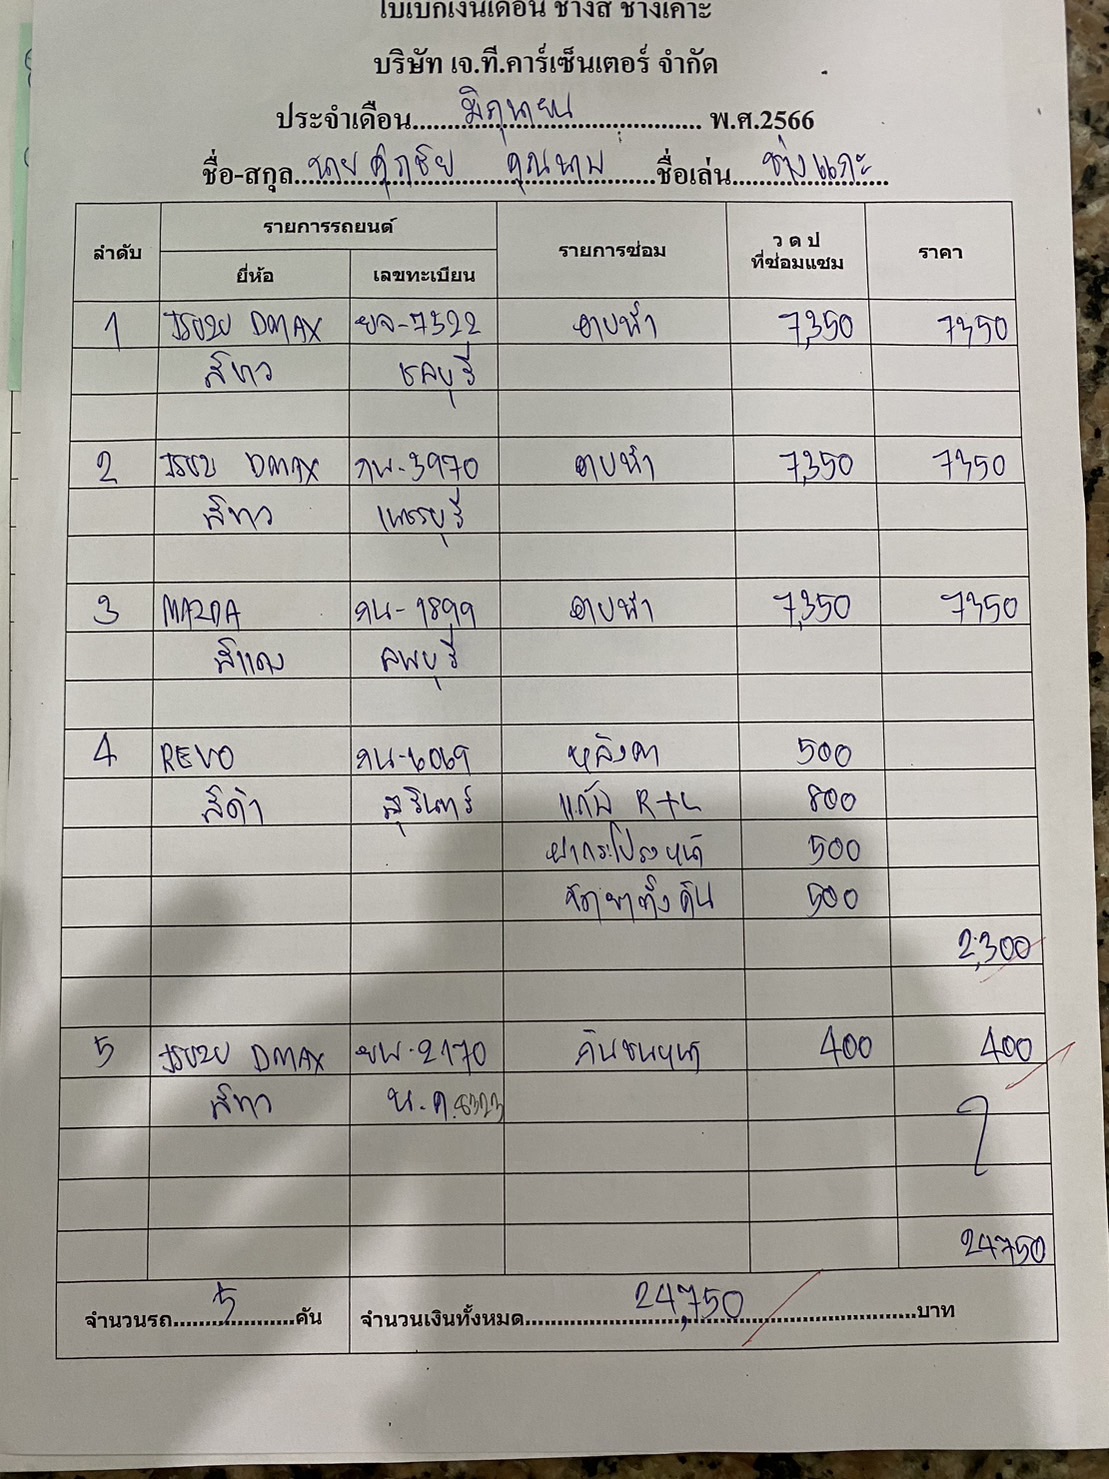 ใบเบิกเงินเดือน ช่างสี ช่างเคาะ
บริษัท เจ.ที.คาร์เซ็นเตอร์ จำกัด
ประจำเดือน มิถุนายน พ.ศ.2566
ชื่อ-สกุล นาย ศุภชัย ชื่อเล่น ช่างแกะ
ลำดับ รายการรถยนต์ รายการซ่อม ว ด ป ที่ซ่อมแซม ราคา
ยี่ห้อ เลขทะเบียน
1 ISUZU DMAX ยจ-7322 อาบน้ำ 7,350 7350
สีขาว ชลบุรี
2 ISUZU DMAX กพ-3970 อาบน้ำ 7,350 7350
สีขาว เพชรบุรี
3 MAZDA กน-1899 อาบน้ำ 7,350 7350
สีแดง ลพบุรี
4 REVO กน-6069 หลังคา 500
สีดำ สุรินทร์ แก้ม R+L 800
ฝากระโปรงหน้า 500
ขัดยาทั้งคัน 500
2,300
5 ISUZU DMAX ยพ-2170 กันชนหน้า 400 400
สีขาว น.ค.
24750
จำนวนรถ 5 คัน จำนวนเงินทั้งหมด 24,750 บาท